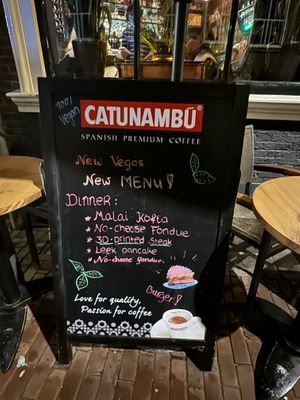 100% Vegan
CATUNAMBÚ®
SPANISH PREMIUM COFFEE
New Vegas
New MENU!
DINNER:
★ Malai Kofta
★ No-cheese Fondue
★ 3D-printed steak
★ Leek pancake
★ No-cheese fondue
Burger!
Love for quality,
Passion for coffee